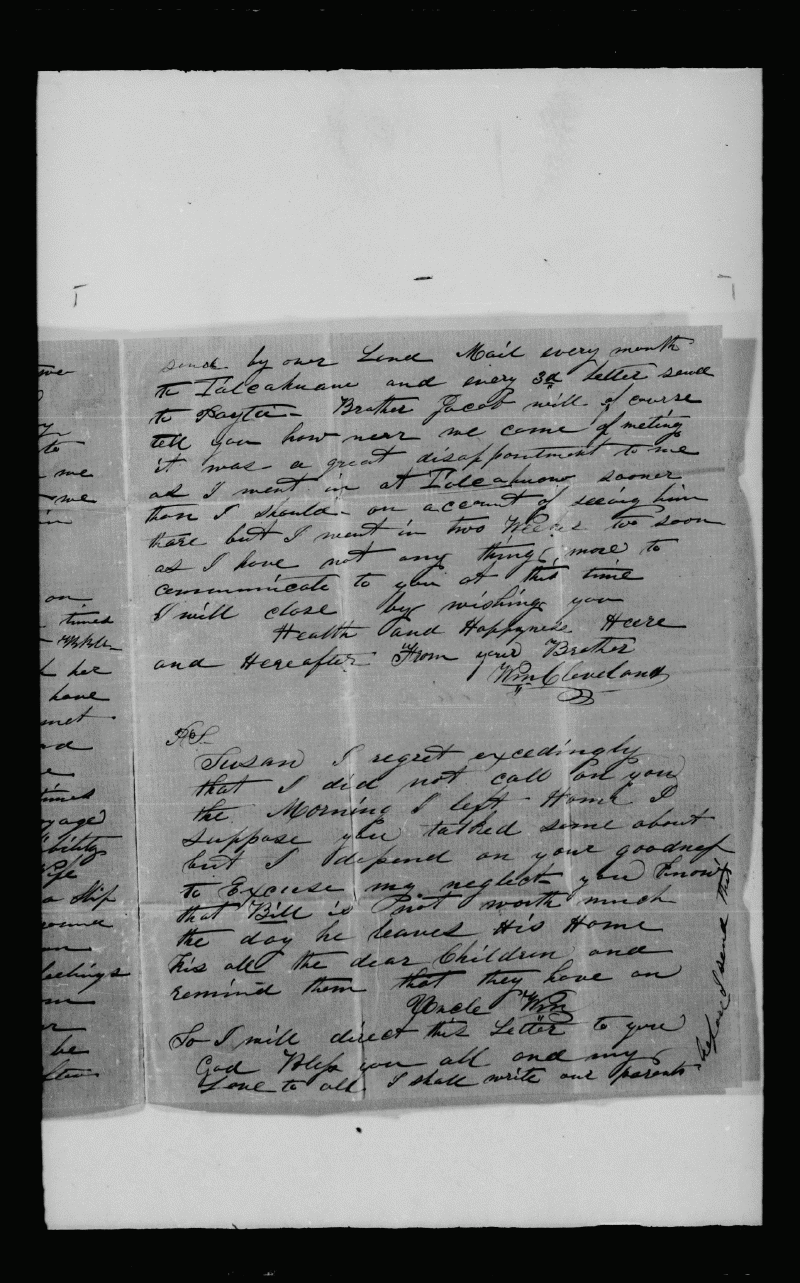 we
to
me
me
in
on
times
her
have
met
times
yage
bility
Wife
a Ship
round
on
feelings
be
send by over Land Mail every month
to Talcahuano and every 3d letter send
to Payta - Brother Jacob will of course
tell you how near we come of meting
it was a great disappointment to me
as I went in at Talcahuano sooner
than I should - on account of seeing him
thare but I went in two Weeks too soon
as I have not any thing more to
communicate to you at this time
I will close by wishing you
Health and Happyness Heare
and Hereafter From your Brother
Wm Cleveland
P.S.
Susan I regret excedingly
that I did not call on you
the Morning I left Home I
suppose you talked some about
but I depend on your goodness
to Excuse my neglect you know
that Bill is not worth much
the day he leaves His Home
Kis all the dear Children and
remind them that they have an
Uncle Wm
So I will direct this Letter to you
God Bless you all and my
Love to all I shall write our parents
before I send this